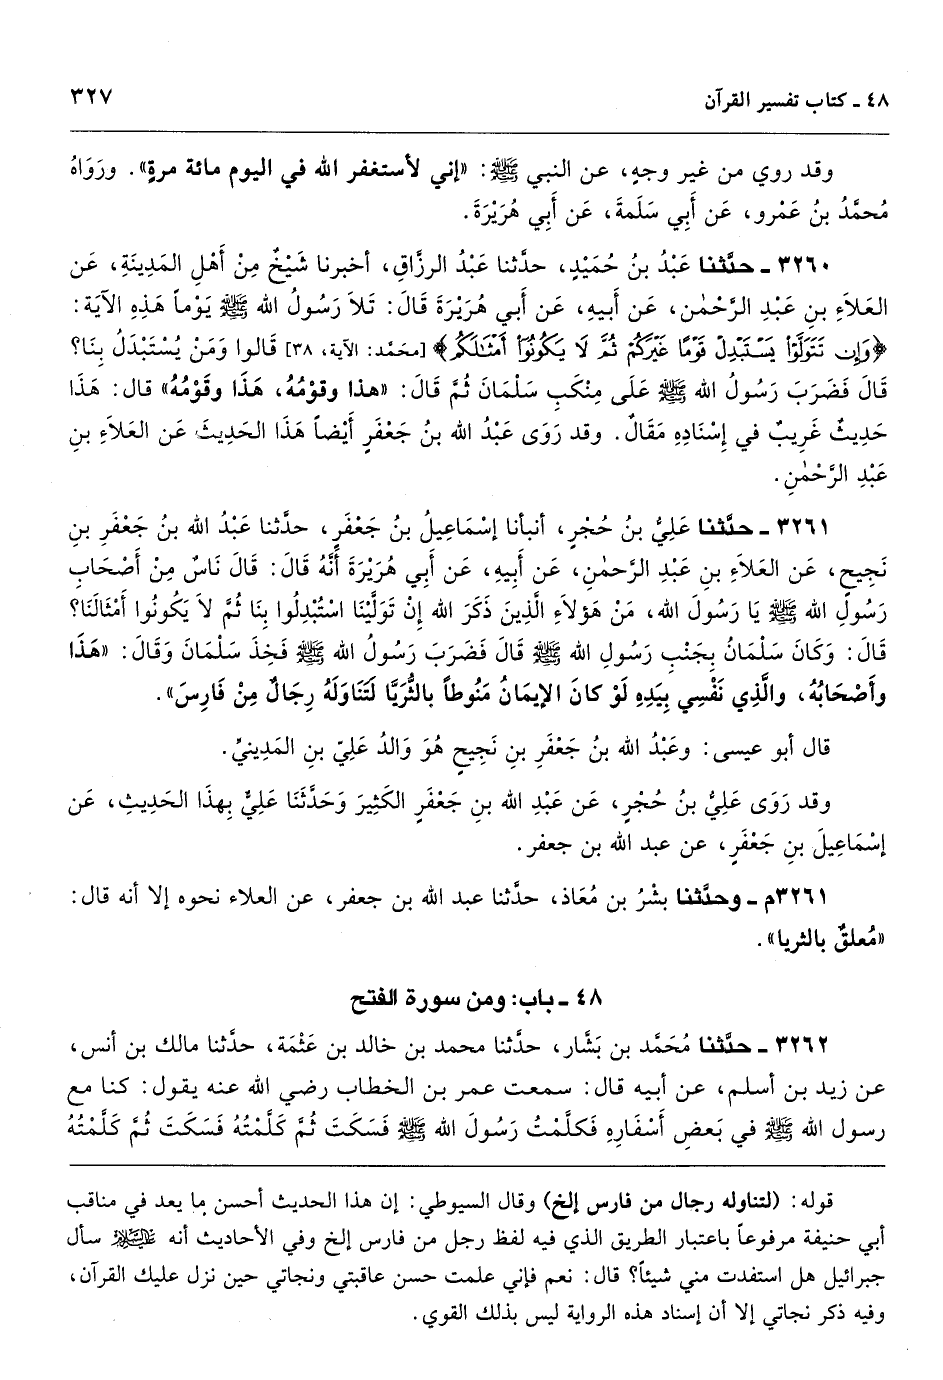 ٤٨ ـ كتاب تفسير القرآن
٣٢٧
وقد روي من غير وجهٍ، عن النبي ﷺ: «إني لأستغفر الله في اليوم مائة مرةٍ». ورَوَاهُ
مُحمَّدُ بنُ عَمْرو، عن أَبِي سَلَمةَ، عَن أَبِي هُرَيْرَةَ.
٣٢٦٠ ـ حدَّثنا عَبْدُ بنُ حُمَيْدٍ، حدَّثنا عَبْدُ الرزَّاقِ، أخبرنا شَيْخٌ مِنْ أَهْلِ المَدِينَةِ، عَن
العَلاَءِ بنِ عَبْدِ الرَّحْمٰنِ، عَن أَبيهِ، عَن أَبي هُرَيْرَةَ قَالَ: تَلاَ رَسُولُ الله ﷺ يَوْماً هَذِهِ الآيَةَ:
﴿وَإِن تَتَوَلَّوْا يَسْتَبْدِلْ قَوْمًا غَيْرَكُمْ ثُمَّ لَا يَكُونُوٓا أَمْثَٰلَكُم﴾ [محمّد: الآية، ٣٨] قَالُوا وَمَنْ يُسْتَبْدَلُ بِنَا؟
قَالَ فَضَرَبَ رَسُولُ الله ﷺ عَلَى مِنْكَبِ سَلْمَانَ ثُمَّ قَالَ: «هذا وقوْمُهُ، هَذَا وقَوْمُهُ» قال: هَذَا
حَدِيثٌ غَرِيبٌ في إسْنَادِهِ مَقَالٌ. وقد رَوَى عَبْدُ الله بنُ جَعْفَرٍ أيْضاً هَذَا الحَدِيثَ عَن العَلاَءِ بنِ
عَبْدِ الرَّحْمٰنِ.
٣٢٦١ ـ حدَّثنا عَلِيُّ بنُ حُجْرٍ، أنبأنا إسْمَاعِيلُ بنُ جَعْفَرٍ، حدَّثنا عَبْدُ الله بنُ جَعْفَرِ بنِ
نَجِيحٍ، عَن العَلاَءِ بنِ عَبْدِ الرَّحمٰنِ، عَن أَبِيهِ، عَن أَبي هُرَيْرَةَ أَنَّهُ قَالَ: قَالَ نَاسٌ مِنْ أَصْحَابِ
رَسُولِ الله ﷺ يَا رَسُولَ الله، مَنْ هَؤلاَءِ الَّذِينَ ذَكَرَ الله إنْ تَوَلَّيْنَا اسْتُبْدِلُوا بِنَا ثُمَّ لاَ يَكُونُوا أَمْثَالَنَا؟
قَالَ: وَكَانَ سَلْمَانُ بِجَنْبِ رَسُولِ الله ﷺ قَالَ فَضَرَبَ رَسُولُ الله ﷺ فَخِذَ سَلْمَانَ وَقَالَ: «هَذَا
وأَصْحَابُهُ، والَّذِي نَفْسِي بِيَدِهِ لَوْ كانَ الإيمَانُ مَنُوطاً بالثُّرَيَّا لَتَنَاوَلَهُ رِجَالٌ مِنْ فَارِسَ».
قال أبو عيسى: وعَبْدُ الله بنُ جَعْفَرِ بنِ نَجِيحٍ هُوَ وَالدُ عَلِيّ بنِ المَدِينيِّ.
وقد رَوَى عَلِيُّ بنُ حُجْرٍ، عَن عَبْدِ الله بنِ جَعْفَرٍ الكَثِيرَ وَحَدَّثَنَا عَلِيٌّ بِهذَا الحَدِيثِ، عَن
إسْمَاعِيلَ بنِ جَعْفَرٍ، عن عبد الله بن جعفر.
٣٢٦١م ـ وحدَّثنا بشْرُ بن مُعَاذ، حدَّثنا عبد الله بن جعفر، عن العلاء نحوه إلا أنه قال:
«مُعلقٌ بالثريا».
٤٨ ـ باب: ومن سورة الفتح
٣٢٦٢ ـ حدَّثنا مُحَمَّد بن بَشَّار، حدَّثنا محمد بن خالد بن عَثْمة، حدَّثنا مالك بن أنس،
عن زيد بن أسلم، عن أبيه قال: سمعت عمر بن الخطاب رضي الله عنه يقول: كنا مع
رسول الله ﷺ في بَعضِ أَسْفَارِهِ فَكلَّمْتُ رَسُولَ الله ﷺ فَسَكَتَ ثُمَّ كَلَّمْتُهُ فَسَكَتَ ثُمَّ كَلَّمْتُهُ
قوله: (لتناوله رجال من فارس إلخ) وقال السيوطي: إن هذا الحديث أحسن ما يعد في مناقب
أبي حنيفة مرفوعاً باعتبار الطريق الذي فيه لفظ رجل من فارس إلخ وفي الأحاديث أنه عليه السلام سأل
جبرائيل هل استفدت مني شيئاً؟ قال: نعم فإني علمت حسن عاقبتي ونجاتي حين نزل عليك القرآن،
وفيه ذكر نجاتي إلا أن إسناد هذه الرواية ليس بذلك القوي.